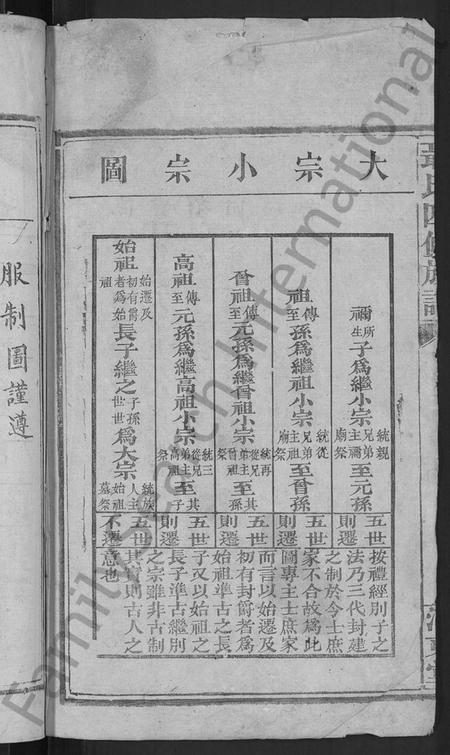 大宗小宗圖
禰所生子爲繼小宗統親兄弟主禰廟祭至元孫五世則遷
祖傳至孫爲繼祖小宗統從兄弟主祖廟祭至曾孫五世則遷
曾祖傳至元孫爲繼曾祖小宗統再從兄弟主曾祖祭至其孫五世則遷
高祖傳至元孫爲繼高祖小宗統三從兄弟主高祖祭至其子五世則遷
始祖始遷及初有爵者爲始祖長子繼之子孫世世爲大宗統族人主始祖墓祭五世不遷
按禮經別子之
法乃三代封建
之制於今士庶
家不合故爲此
圖專主士庶家
而言以始遷及
初有封爵者爲
始祖準古之長
子又以始祖之
長子準古繼別
之宗雖非古制
其實則古人之
意也
服制圖謹遵
Family Search International